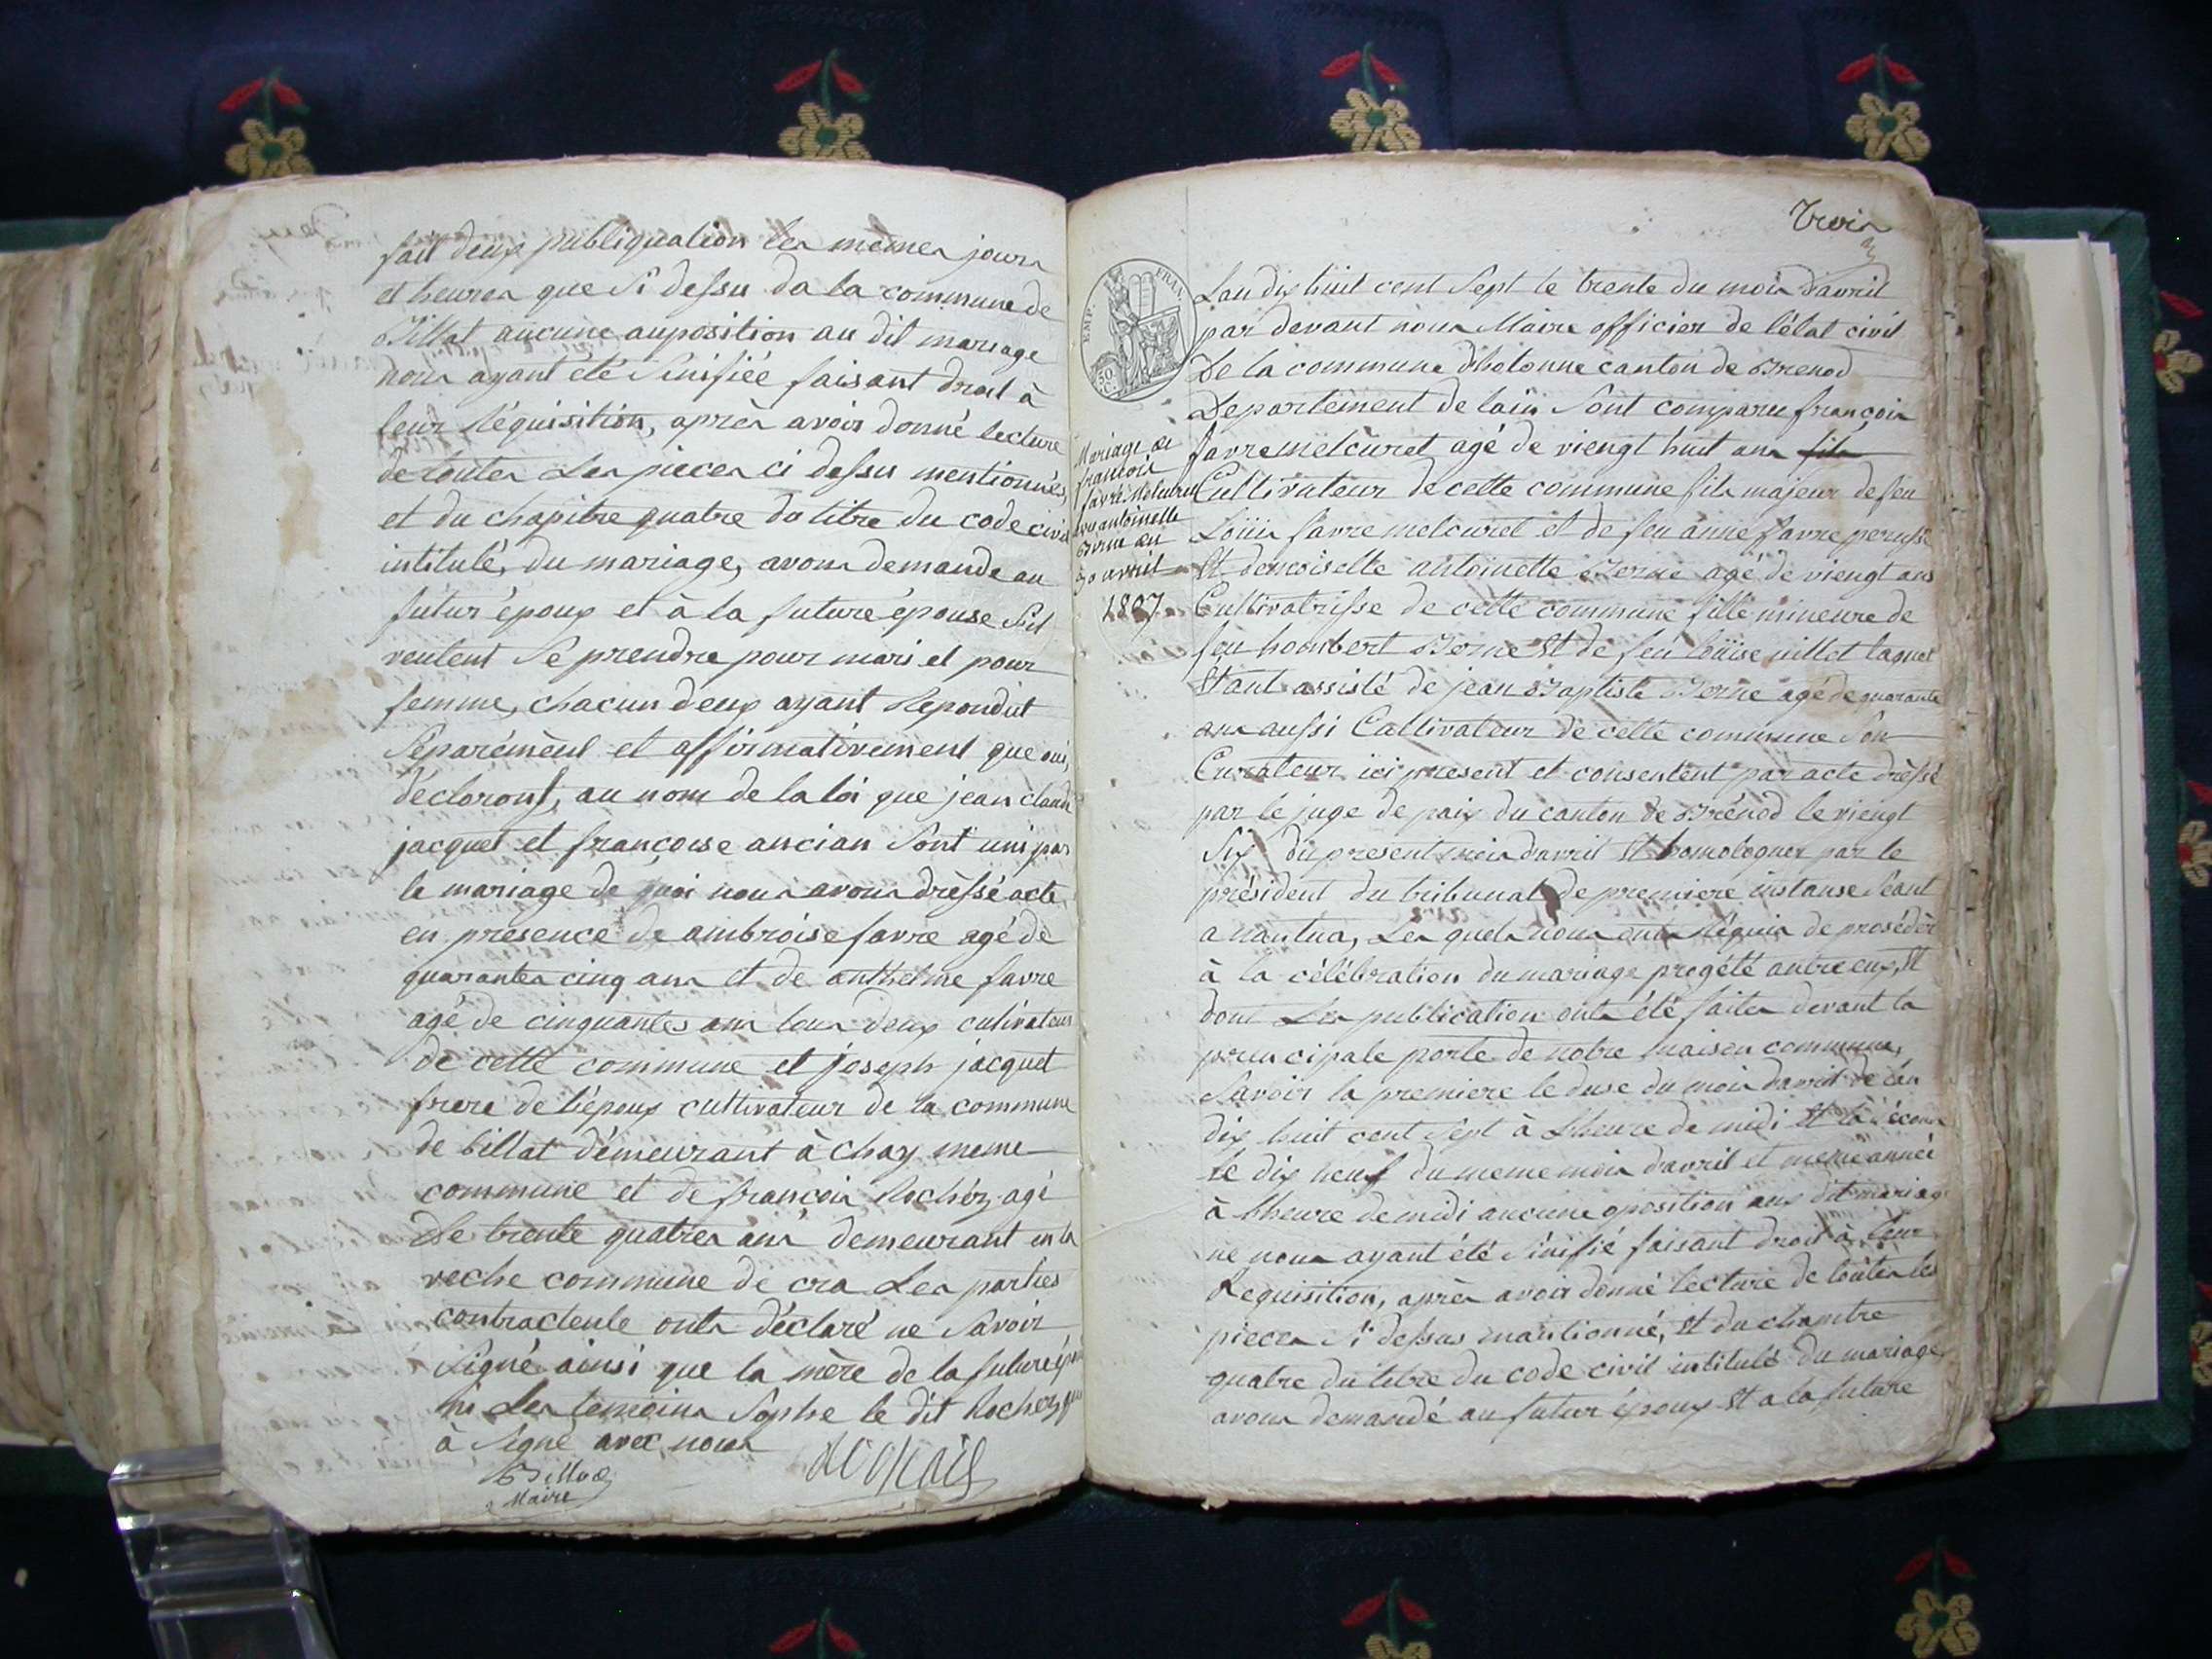 fait deux publiquation les memes jours
et heures que si dessu da la commune de
Billat aucune auposition au dit mariage
nous ayant été sinifiée faisant droit à
leur réquisition, après avoir donné lecture
de toutes les pieces ci dessu mentionnés,
et du chapitre quatre du titre du code civil
intitulé, du mariage, avons demande au
futur époux et à la future épouse s'il
veulent se prendre pour mari et pour
femme, chacun deux ayant repondut
séparément et affirmativement que oui,
décloront, au nom de la loi que jean claude
jacquet et françoise ancian sont uni par
le mariage de quoi nous avons drèssé acte
en présence de ambroise favre agé de
quarantes cinq ans et de anthelme favre
agé de cinquantes ans tous deux cultivateurs
de cette commune et joseph jacquet
frere de l'époux cultivateur de la commune
de billat démeurant à chay meme
commune et de françois Rochéz agé
de trente quatres ans demeurant en la
veche commune de cra Les parties
contractente onts déclaré ne savoir
signé ainsi que la mère de la future
ni Les temoins sophe le dit Rochez qui
à signé avec nous
Maire
Trois
3
EMP. FRAN.
50
Mariage de
françois
favre Melcuret
avec antoinette
Berne du
30 avril
1807
Lan dix huit cent sept le trente du mois d'avril
par devant nous Maire officier de l'état civil
De la commune d'hotonne canton de Brenod
Departement de laiin sont comparu françois
favre melcuret agé de viengt huit ans fils
Cultivateur de cette commune fils majeur de feu
Loüis favre melcuret et de feu anne favre perusse
Et demoiselle antoinette Berne agé de viengt ans
Cultivatrisse de cette commune fille mineure de
feu houmbert Berne Et de feu loüise nillet laquel
Etant assisté de jean Baptiste Berne agé de quarante
ans aussi Caltivateur de cette commune son
Curateur ici present et consentent par acte drèssé
par le juge de paix du canton de Brénod le viengt
six du present mois d'avril Et homologuer par le
président du tribunal de premiere instanse seant
a nantua, Les quels nous onts réquis de proséder
à la célébration du mariage progété antre eux, Et
dont Les publication onts été faites devant la
prencipale porte de notre maison commune,
savoir la premiere le duse du mois d'avril de l'an
dix huit cent sept à l'heure de midi Et la sécon
le dix neuf du meme mois d'avril et meme année
à l'heure de midi aucune oposition aux dit mariage
ne nous ayant été sinifié faisant droit à leur
Requisition, après avoir donné lecture de toutes les
pieces si dessus mantionné, Et du chapitre
quatre du titre du code civil intitulé du mariage
avons demandé au futur époux Et a la future